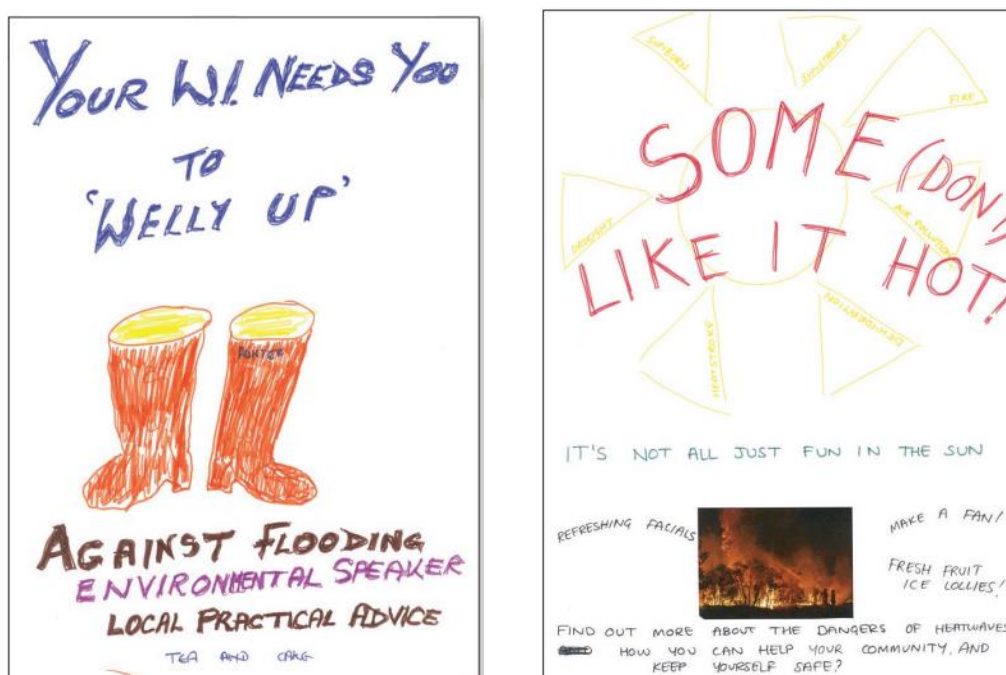 YOUR W.I. NEEDS YOU
TO
'WELLY UP'
HUNTER
AGAINST FLOODING
ENVIRONMENTAL SPEAKER
LOCAL PRACTICAL ADVICE
TEA AND CAKE
SUNBURN
SUNSTROKE
FIRE
SOME (DON'T)
DROUGHT
AIR POLLUTION
LIKE IT HOT!
HEATSTROKE
DEHYDRATION
IT'S NOT ALL JUST FUN IN THE SUN
REFRESHING FACIALS
MAKE A FAN!
FRESH FRUIT
ICE LOLLIES!
FIND OUT MORE ABOUT THE DANGERS OF HEATWAVES
HOW YOU CAN HELP YOUR COMMUNITY, AND
KEEP YOURSELF SAFE?